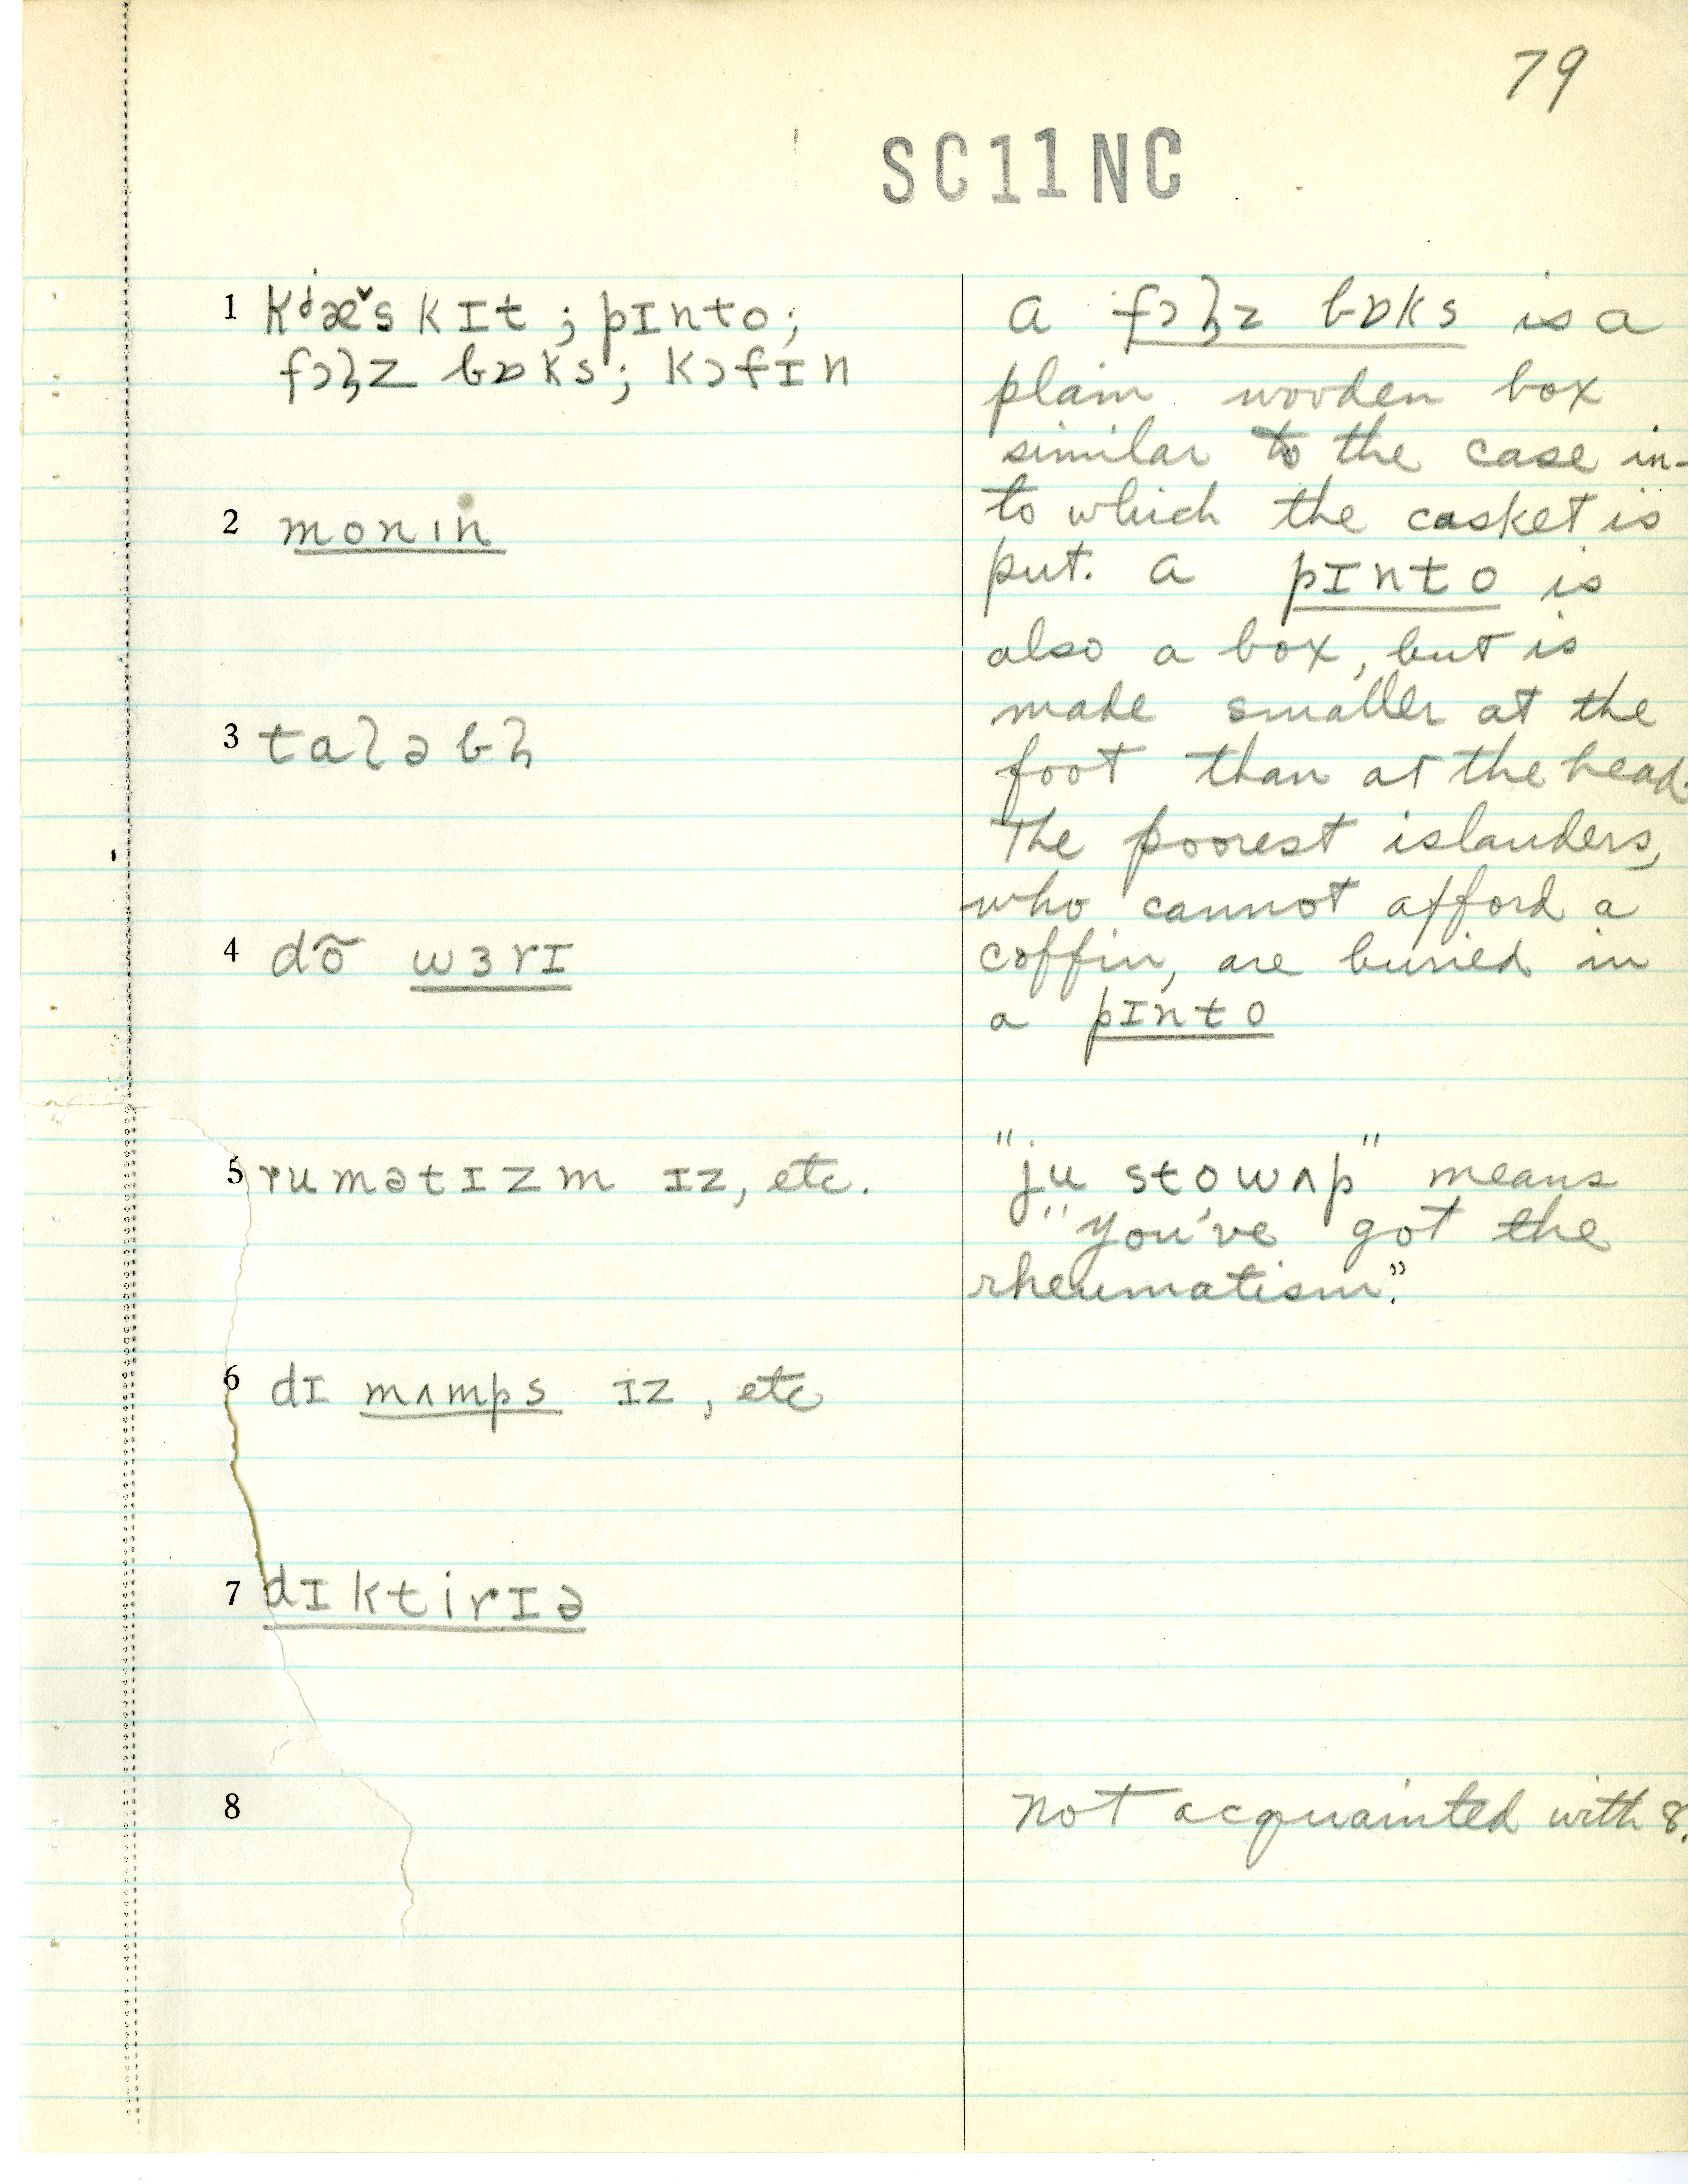 79
SC11NC
1 kʲæ̌skɪt; pɪnto;
fɔl̩z bɒks; kɔfɪn
a fɔl̩z bɒks is a
plain wooden box
similar to the case in-
to which the casket is
put. a pɪnto is
also a box, but is
made smaller at the
foot than at the head.
The poorest islanders,
who cannot afford a
coffin, are buried in
a pɪnto
2 monin
3
4 dõ wɜrɪ
5 rumətɪzm ɪz, etc.
"ju stowʌp" means
"you've got the
rheumatism."
6 dɪ mʌmps ɪz, etc
7 dɪktirɪə
8
not acquainted with 8.